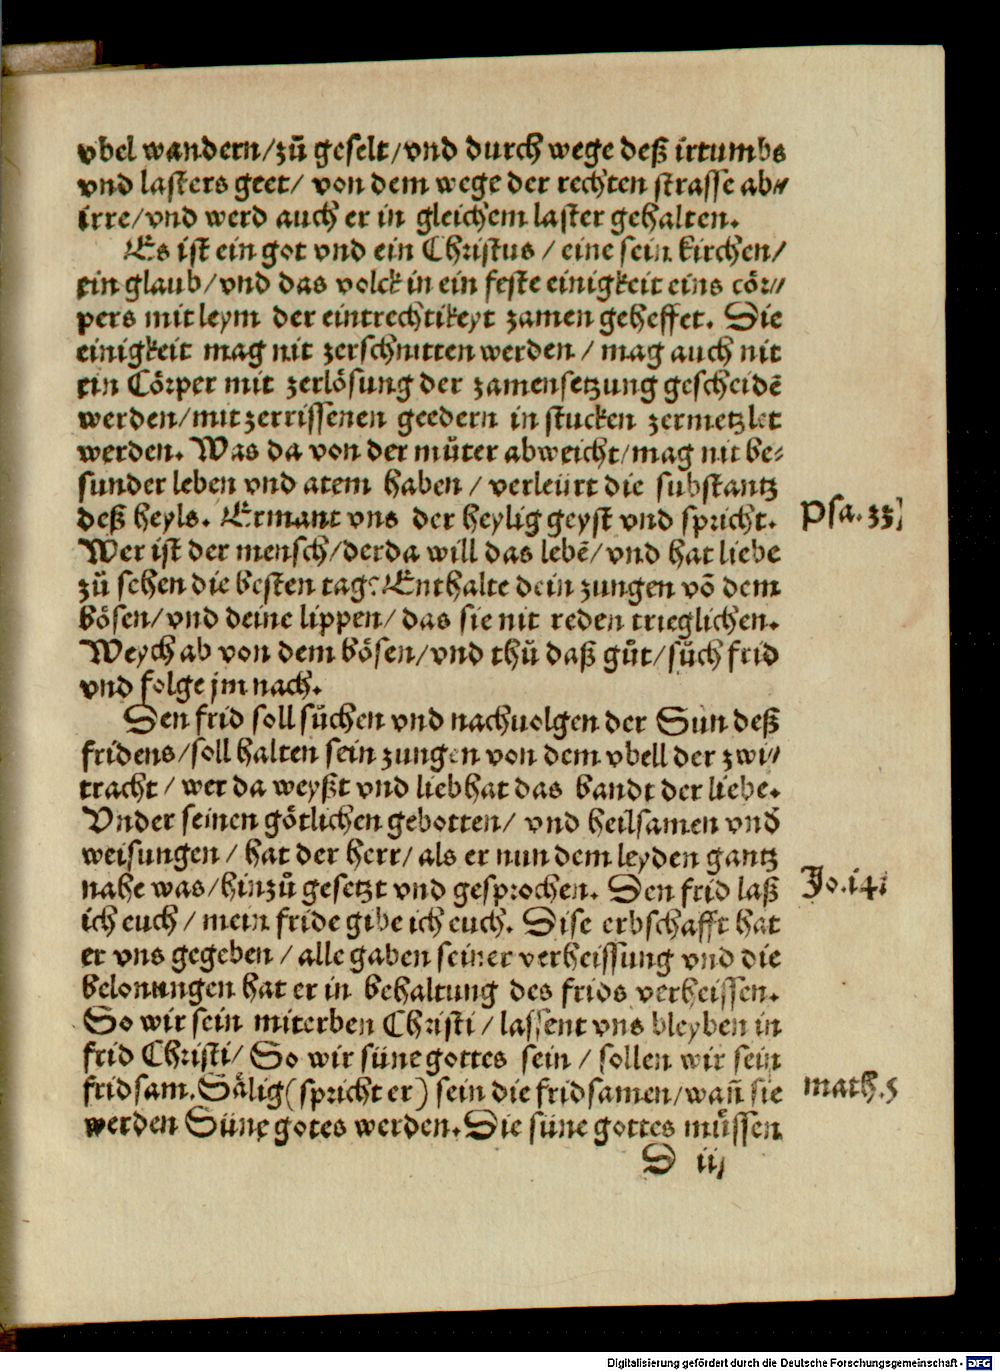 vbel wandern/zů geselt/vnd durch wege deß irtumbs
vnd lasters geet/ von dem wege der rechten strasse ab⸗
irre/vnd werd auch er in gleichem laster gehalten.
Es ist ein got vnd ein Christus / eine sein kirchen/
ein glaub/vnd das volck in ein feste einigkeit eins cör⸗
pers mit leym der eintrechtikeyt zamen geheffet. Die
einigkeit mag nit zerschnitten werden / mag auch nit
ein Cörper mit zerlösung der zamensetzung gescheidē
werden/mit zerrissenen geedern in stucken zermetzlet
werden. Was da von der můter abweicht/mag nit be⸗
sunder leben vnd atem haben / verleürt die substantz
deß heyls. Ermant vns der heylig geyst vnd spricht.
Psa. 33.
Wer ist der mensch/der da will das lebē/ vnd hat liebe
zů sehen die besten tag? Enthalte dein zungen vō dem
bösen/ vnd deine lippen/ das sie nit reden trieglichen.
Weych ab von dem bösen/vnd thů daß gůt/sůch frid
vnd folge jm nach.
Den frid soll sůchen vnd nachuolgen der Sun deß
fridens/soll halten sein zungen von dem vbell der zwi⸗
tracht / wer da weyßt vnd lieb hat das bandt der liebe.
Vnder seinen götlichen gebotten/ vnd heilsamen vnd
weisungen / hat der herr/ als er nun dem leyden gantz
nahe was/hinzů gesetzt vnd gesprochen. Den frid laß
Jo. 14.
ich euch / mein fride gibe ich euch. Dise erbschafft hat
er vns gegeben / alle gaben seiner verheissung vnd die
belonungen hat er in behaltung des frids verheissen.
So wir sein miterben Christi / lassent vns bleyben in
frid Christi/ So wir süne gottes sein / sollen wir sein
fridsam. Sälig (spricht er) sein die fridsamen/wañ sie
math. 5
werden Süne gotes werden. Die süne gottes můssen
D ii
Digitalisierung gefördert durch die Deutsche Forschungsgemeinschaft - DFG